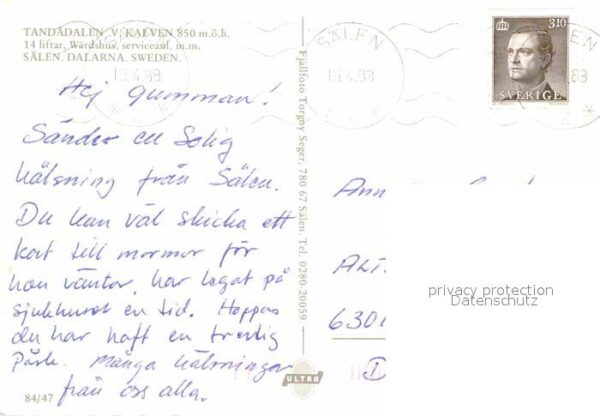 TANDÅDALEN, V. KALVEN 850 m.ö.h.
14 liftar, Wärdshus, serviceanl. m.m.
SÄLEN. DALARNA. SWEDEN.
Hej gumman!
Sänder en Solig
hälsning från Sälen.
Du kan väl skicka ett
kort till mormor för
hon väntar, har legat på
sjukhuset en tid. Hoppas
du har haft en trevlig
Påsk. Många hälsningar
från oss alla.
84/47
Fjällfoto Torgny Seger, 780 67 Sälen. Tel. 0280-20059
ULTRO
SÄLEN
19.4.88
88
3.10
SVERIGE
Ann
ALT
6301
D
privacy protection
Datenschutz